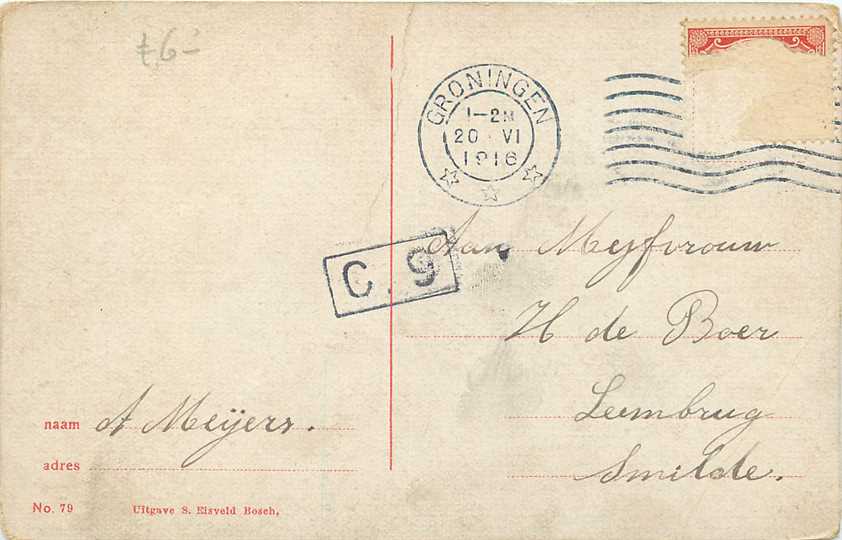 £6-
GRONINGEN
1-2N
20 VI
1916
C. 9
Aan Mejfvrouw
H de Boer
Leembrug
Smilde.
naam A Meijers.
adres
No. 79 Uitgave S. Elsveld Bosch,